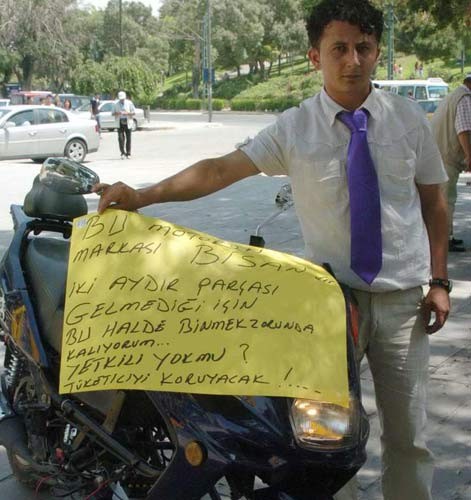 BU MOTORUN
MARKASI BİSAN....
İKİ AYDIR PARÇASI
GELMEDİĞİ İÇİN
BU HALDE BİNMEK ZORUNDA
KALIYORUM...
YETKİLİ YOKMU ?
TÜKETİCİYİ KORUYACAK !....